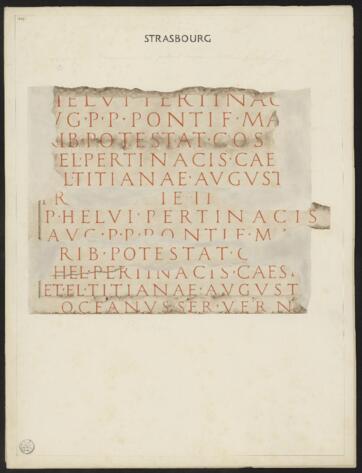 STRASBOURG
HELVI PERTINAC
VG·P·P·PONTIF·MA
RIB·POTESTAT·COS
HEL·PERTINACIS·CAE
L·TITIANAE·AVGVST
R IETI
P·HELVI·PERTINACIS
AVG·P·P·PONTIF·MA
RIB·POTESTAT·C
HEL·PERTINACIS·CAES
ET·EL·TITIANAE·AVGVST
OCEANVS·SER·VERN